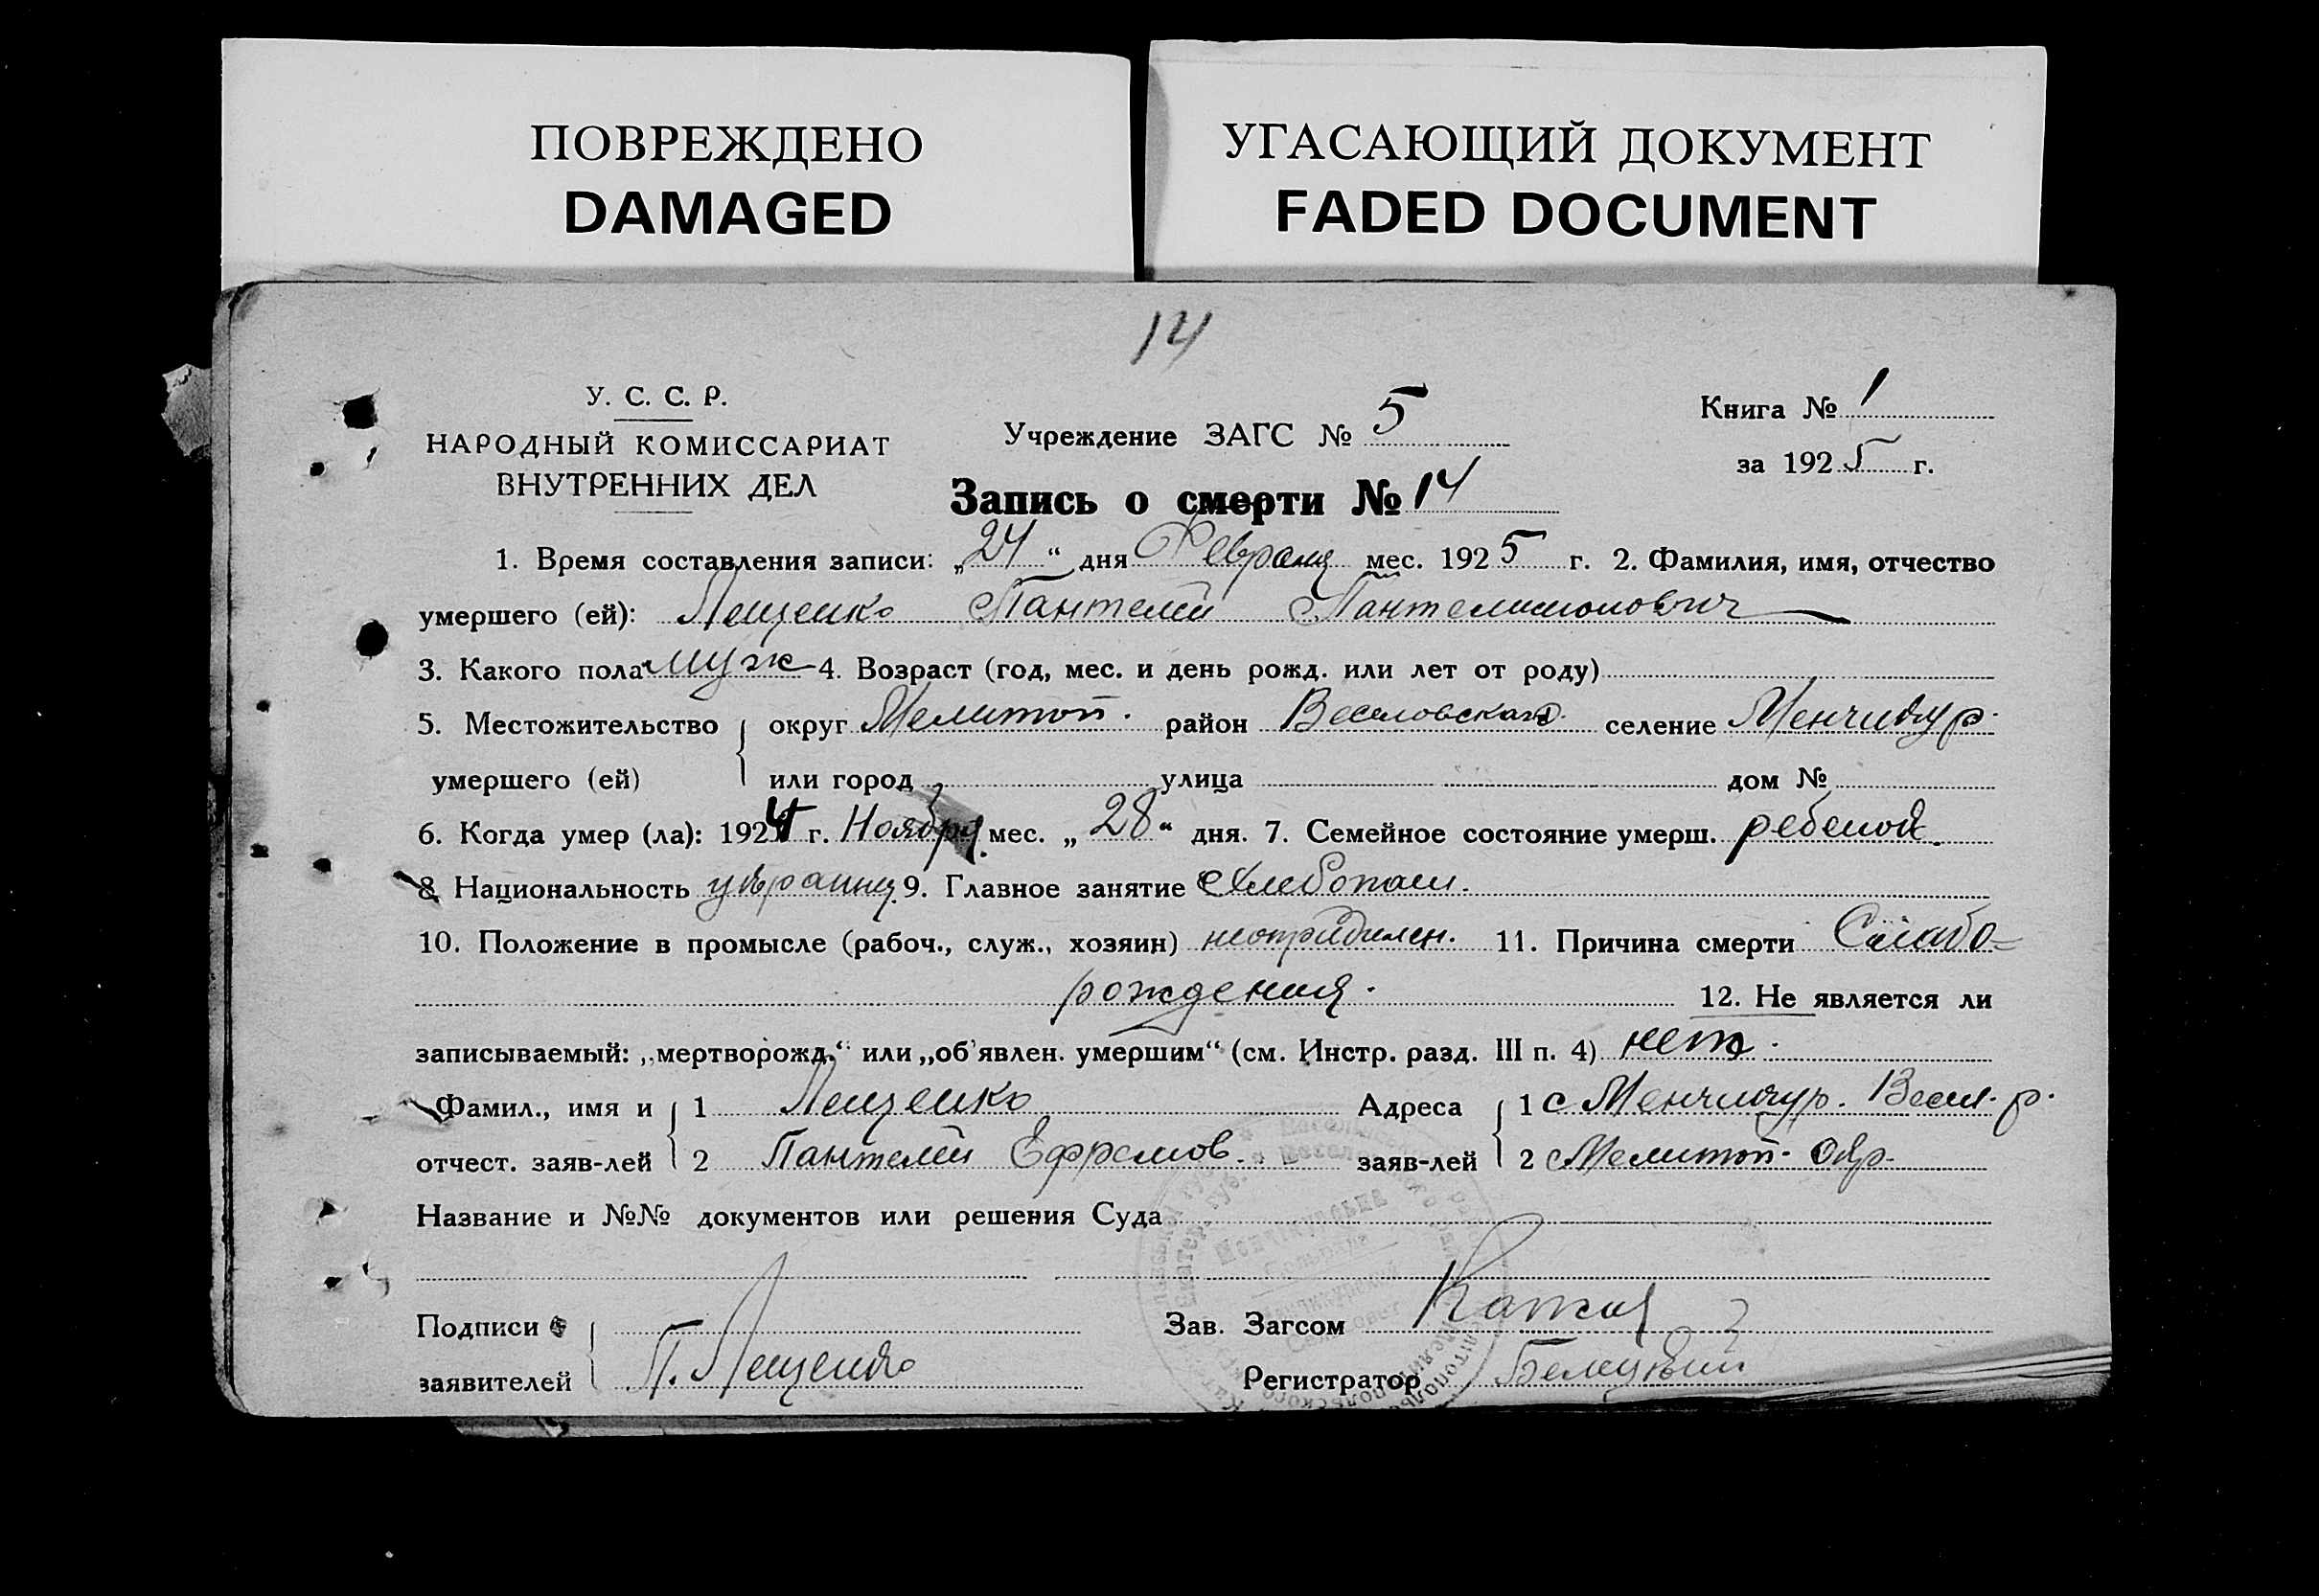 ПОВРЕЖДЕНО
DAMAGED
УГАСАЮЩИЙ ДОКУМЕНТ
FADED DOCUMENT
14
У. С. С. Р.
НАРОДНЫЙ КОМИССАРИАТ
ВНУТРЕННИХ ДЕЛ
Учреждение ЗАГС № 5
Книга № 1
за 1925 г.
Запись о смерти № 14
1. Время составления записи: „24“ дня Февраля мес. 1925 г. 2. Фамилия, имя, отчество
умершего (ей): Лещенко Пантелей Пантелимонович
3. Какого пола муж 4. Возраст (год, мес. и день рожд. или лет от роду)
5. Местожительство умершего (ей) округ Мелитоп. район Веселовского селение Менчикур.
или город улица дом №
6. Когда умер (ла): 1924 г. Ноября мес. „28“ дня. 7. Семейное состояние умерш. ребенок.
8 Национальность украинец 9. Главное занятие Хлебопаш.
10. Положение в промысле (рабоч., служ., хозяин) 11. Причина смерти Слабо-
рождения. 12. Не является ли
записываемый: „мертворожд.“ или „об'явлен. умершим“ (см. Инстр. разд. III п. 4) нет.
Фамил., имя и отчест. заяв-лей 1 Лещенко Адреса заяв-лей 1 с Менчикур. Весел. р.
2 Пантелей Ефремов. 2 Мелитоп. Окр.
Название и №№ документов или решения Суда
Подписи заявителей П. Лещенко
Зав. Загсом
Регистратор Белецкий